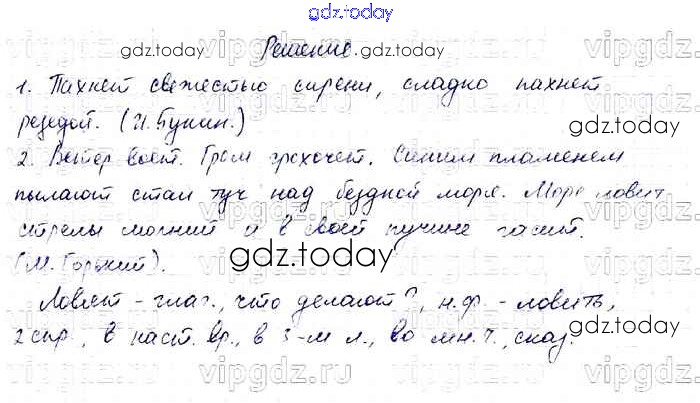 gdz.today
Решение.
1. Пахнет свежестью сирени, сладко пахнет
резедой. (И. Бунин.)
2. Ветер воет. Гром грохочет. Синим пламенем
пылают стаи туч над бездной моря. Море ловит
стрелы молний и в своей пучине гасит.
(М. Горький).
Ловят - глаг., что делают?, н.ф. - ловить,
2 спр., в наст. вр., в 3-м л., во мн. ч., сказ.